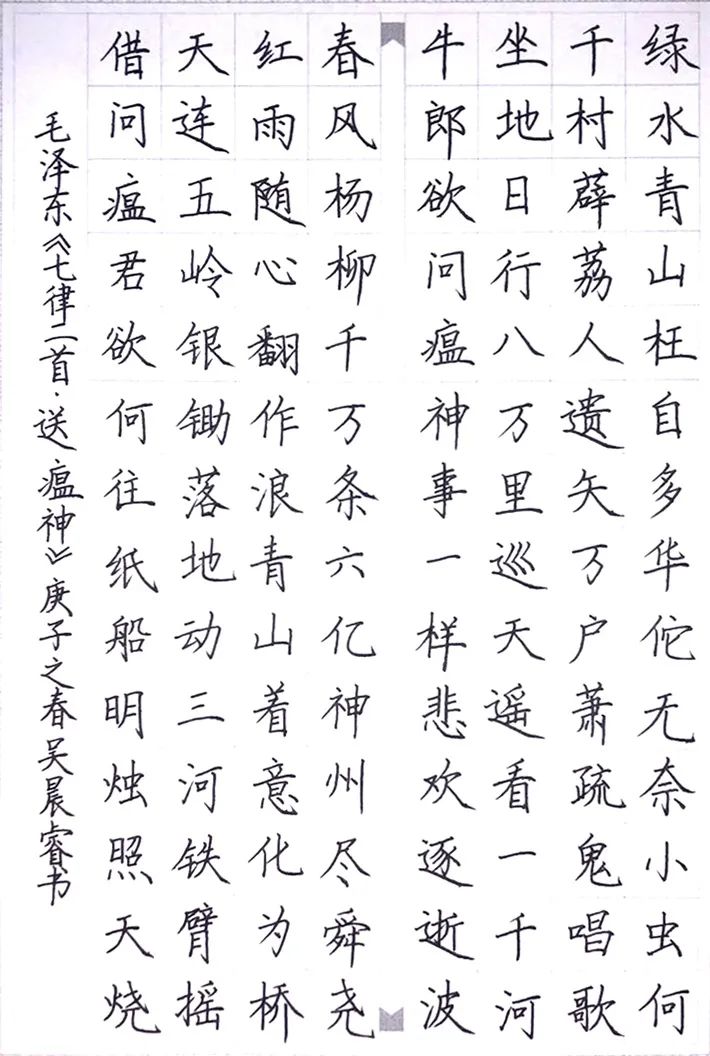 绿水青山枉自多华佗无奈小虫何
千村薜荔人遗矢万户萧疏鬼唱歌
坐地日行八万里巡天遥看一千河
牛郎欲问瘟神事一样悲欢逐逝波
春风杨柳千万条六亿神州尽舜尧
红雨随心翻作浪青山着意化为桥
天连五岭银锄落地动三河铁臂摇
借问瘟君欲何往纸船明烛照天烧
毛泽东《七律二首·送瘟神》庚子之春吴晨睿书